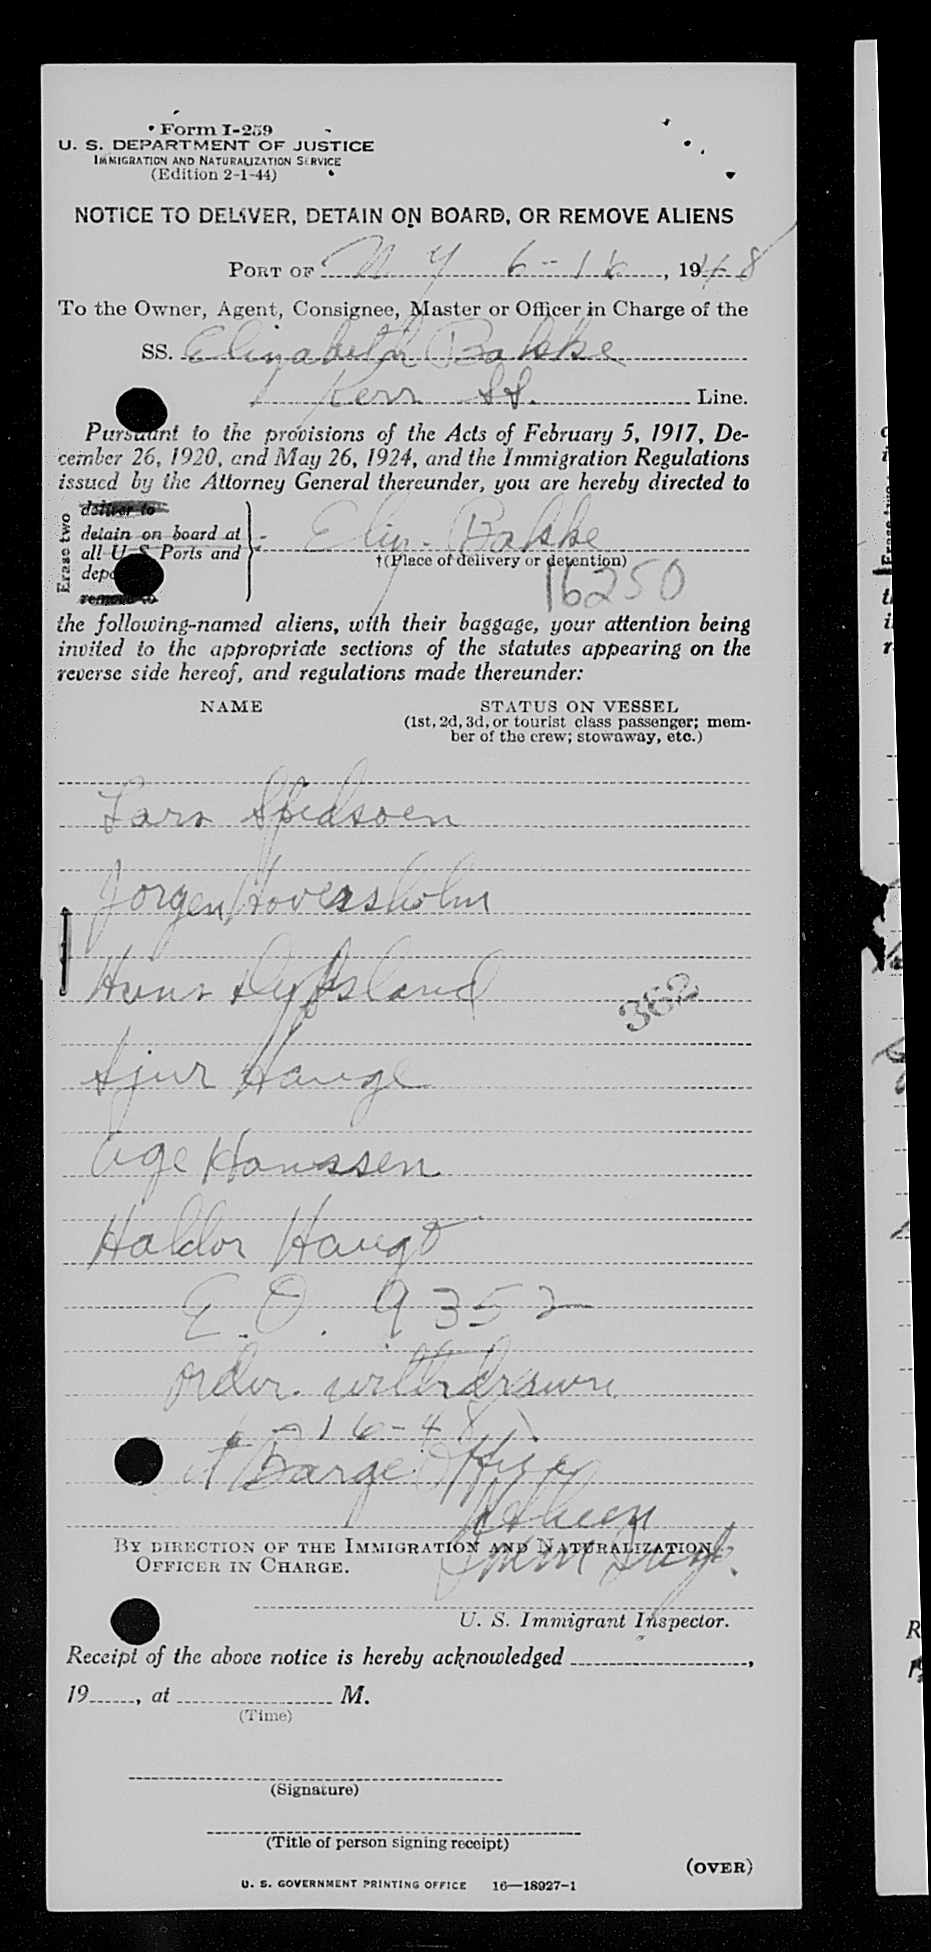 Form I-259
U. S. DEPARTMENT OF JUSTICE
IMMIGRATION AND NATURALIZATION SERVICE
(Edition 2-1-44)
NOTICE TO DELIVER, DETAIN ON BOARD, OR REMOVE ALIENS
PORT OF N Y 6-16, 1948
To the Owner, Agent, Consignee, Master or Officer in Charge of the
SS. Elizabeth Bakke
Kerr SS. Line.
Pursuant to the provisions of the Acts of February 5, 1917, De-
cember 26, 1920, and May 26, 1924, and the Immigration Regulations
issued by the Attorney General thereunder, you are hereby directed to
Erase two
deliver to
detain on board at
all U S Ports and
remove to
Eliz. Bakke
†(Place of delivery or detention)
16250
the following-named aliens, with their baggage, your attention being
invited to the appropriate sections of the statutes appearing on the
reverse side hereof, and regulations made thereunder:
NAME STATUS ON VESSEL
(1st, 2d, 3d, or tourist class passenger; mem-
ber of the crew; stowaway, etc.)
Lars Spidsoen
Jorgen Hoversholm
Hans Dypsland
362
Sjur Hauge
Age Hanssen
Haldor Haugo
E. O. 9352
order withdrawn
6-16-48
at Barge Office
BY DIRECTION OF THE IMMIGRATION AND NATURALIZATION
OFFICER IN CHARGE.
Imm Insp.
U. S. Immigrant Inspector.
Receipt of the above notice is hereby acknowledged ,
19 , at M.
(Time)
(Signature)
(Title of person signing receipt)
(OVER)
U. S. GOVERNMENT PRINTING OFFICE 16—18927-1